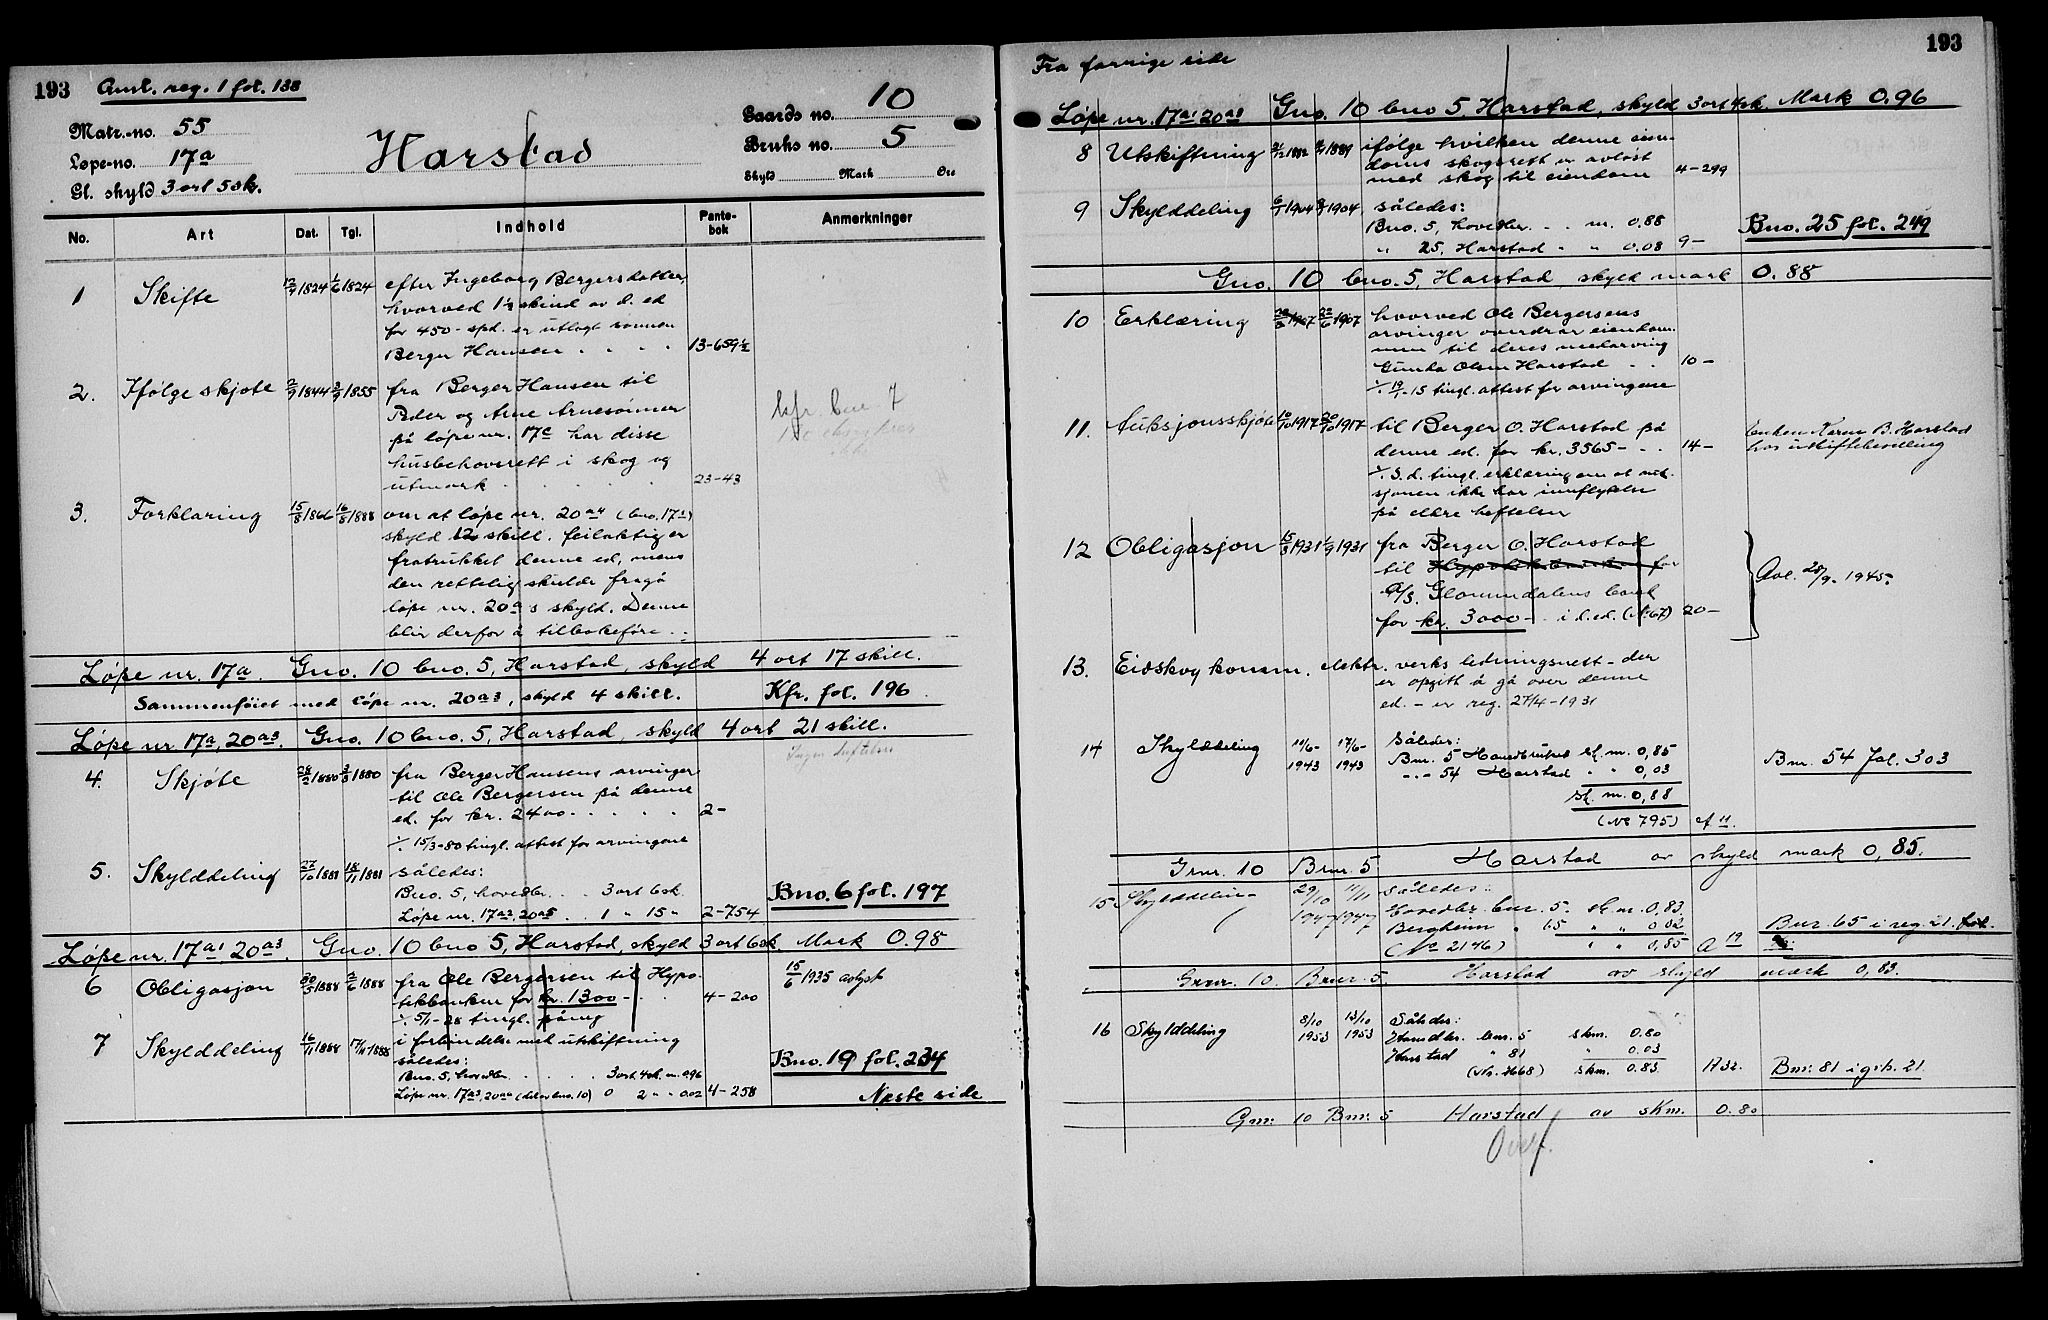 193 Amt. reg. 1 fol. 138
Matr.-no. 55
Løpe-no. 17a
Gl. skyld 3 ort 5 sk.
Harstad
Gaards no. 10
Bruks no. 5
Skyld Mark Øre
No. Art Dat. Tgl. Indhold Pante-bok Anmerkninger
1 Skifte 12/4 1824 1/6 1824 efter Ingeborg Bergersdatter,
hvorved 1½ skind av d. ed
for 450 - spd. er utlagt sønnen
Berger Hansen . . . . 13-659½
2. Ifølge skjøte 2/9 1844 3/9 1855 fra Berger Hansen til
Peder og Arne Arnesønner
på løpe nr. 17c har disse
husbehovsrett i skog og
utmark . . . . . 23-43
kfr. bno. 7
3. Forklaring 15/8 1866 16/8 1888 om at løpe nr. 20a4 (bno. 17)
skyld 12 skill. feilaktig er
fratrukket denne ed, mens
den rettelig skulde fragå
løpe nr. 20a's skyld. Denne
blir derfor å tilbakeføre . .
Løpe nr. 17a. Gno. 10 bno. 5, Harstad, skyld 4 ort 17 skill.
Sammenføiet med løpe nr. 20a3, skyld 4 skill. Kfr. fol. 196
Løpe nr. 17a, 20a3. Gno. 10 bno. 5, Harstad, skyld 4 ort 21 skill.
4. Skjøte 28/2 1880 3/3 1880 fra Berger Hansens arvinger
til Ole Bergersen på denne
ed. for kr. 2400 - . . . . 2-
./. 15/3-80 tingl. attest for arvingene
5. Skylddeling 27/10 1881 18/11 1881 således:
Bno. 5, hovedbr. . . 3 ort 6 sk.
Løpe nr. 17a2, 20a5 . . 1 " 15 " 2-754
Bno. 6 fol. 197
Løpe nr. 17a1, 20a3. Gno. 10 bno 5, Harstad, skyld 3 ort 6 sk. Mark 0.98
6 Obligasjon 30/5 1888 2/6 1888 fra Ole Bergersen til Hypo-
tekbanken for kr. 1300 - . . 4-200
./. 5/1-28 tingl. påneg
15/6 1935 avlyst
7 Skylddeling 16/11 1888 17/11 1888 i forbindelse med utskiftning
således:
Bno. 5, hovedbr. . . . . 3 ort. 4 sk. m. 0.96
Løpe nr. 17a3, 20a4 (del av bno. 10) 0 2 " " 0.02 4-258
Bno. 19 fol. 234
Neste side
193
Fra forrige side
Løpe nr. 17a1 20a8 Gno. 10 bno 5, Harstad, skyld 3 ort 4 sk. Mark 0.96
8 Utskiftning 1882 1889 ifølge hvilken denne eien-
doms skogsrett er avløst
med skog til eiendom 4-299
9 Skylddeling 6/7 1904 8/7 1904 således:
Bno. 5, hovedbr. . . m. 0.88
" 25, Harstad - " 0.08 9-
Bno. 25 fol. 249
Gno. 10 bno. 5, Harstad, skyld mark 0.88
10 Erklæring 1907 22/6 1907 hvorved Ole Bergersens
arvinger overdrar eiendom-
men til deres medarving
Gunda Olsen Harstad . . 10-
./. 19/1-15 tingl. attest for arvingene
11. Auksjonsskjøte 10/10 1917 20/10 1917 til Berger O. Harstad på
denne ed. for kr. 3565 - . . 14-
./. S. d. tingl. erklæring om at auk-
sjonen ikke har innflytelse
på eldre heftelser
Enken Karen B. Harstad
har uskiftebevilling
12 Obligasjon 15/8 1931 1/9 1931 fra Berger O. Harstad
til Hypotekbanken for
A/S. Glommdalens bank
for kr. 3000 - . i d. ed. (No 67) 20-
Avl. 28/9. 1945.
13. Eidskog komm. elektr. verks ledningsrett - der
er opgitt å gå over denne
ed. - er reg. 27/4-1931
14 Skylddeling 11/6-1943 17/6-1943 Således:
Bnr. 5 Hovedbruket sk. m. 0,85
- " - 54 Harstad " " 0,03
sk. m. 0,88
(No 795) A 11.
Bnr. 54 fol. 303
Gnr. 10 Bnr. 5 Harstad av skyld mark 0,85.
15 Skylddeling 29/10 1947 11/11 1947 således:
Hovedbr. bnr. 5. sk. m. 0,83
Bergheim " 65 " " 0,02
(No 2146) " " 0,85 A 19
Bnr. 65 i reg. 21. fol.
Gnr. 10. Bnr. 5. Harstad av skyld mark 0,83.
16 Skylddeling 8/10 1953 13/10 1953 Således:
Hovedbr. bnr. 5 skm. 0.80
Harstad " 81 " 0.03
(Nr. 3668) skm. 0.83 A 32.
Bnr. 81 i gr.b. 21.
Gnr. 10 Bnr. 5 Harstad av skm. 0.80
Overf.